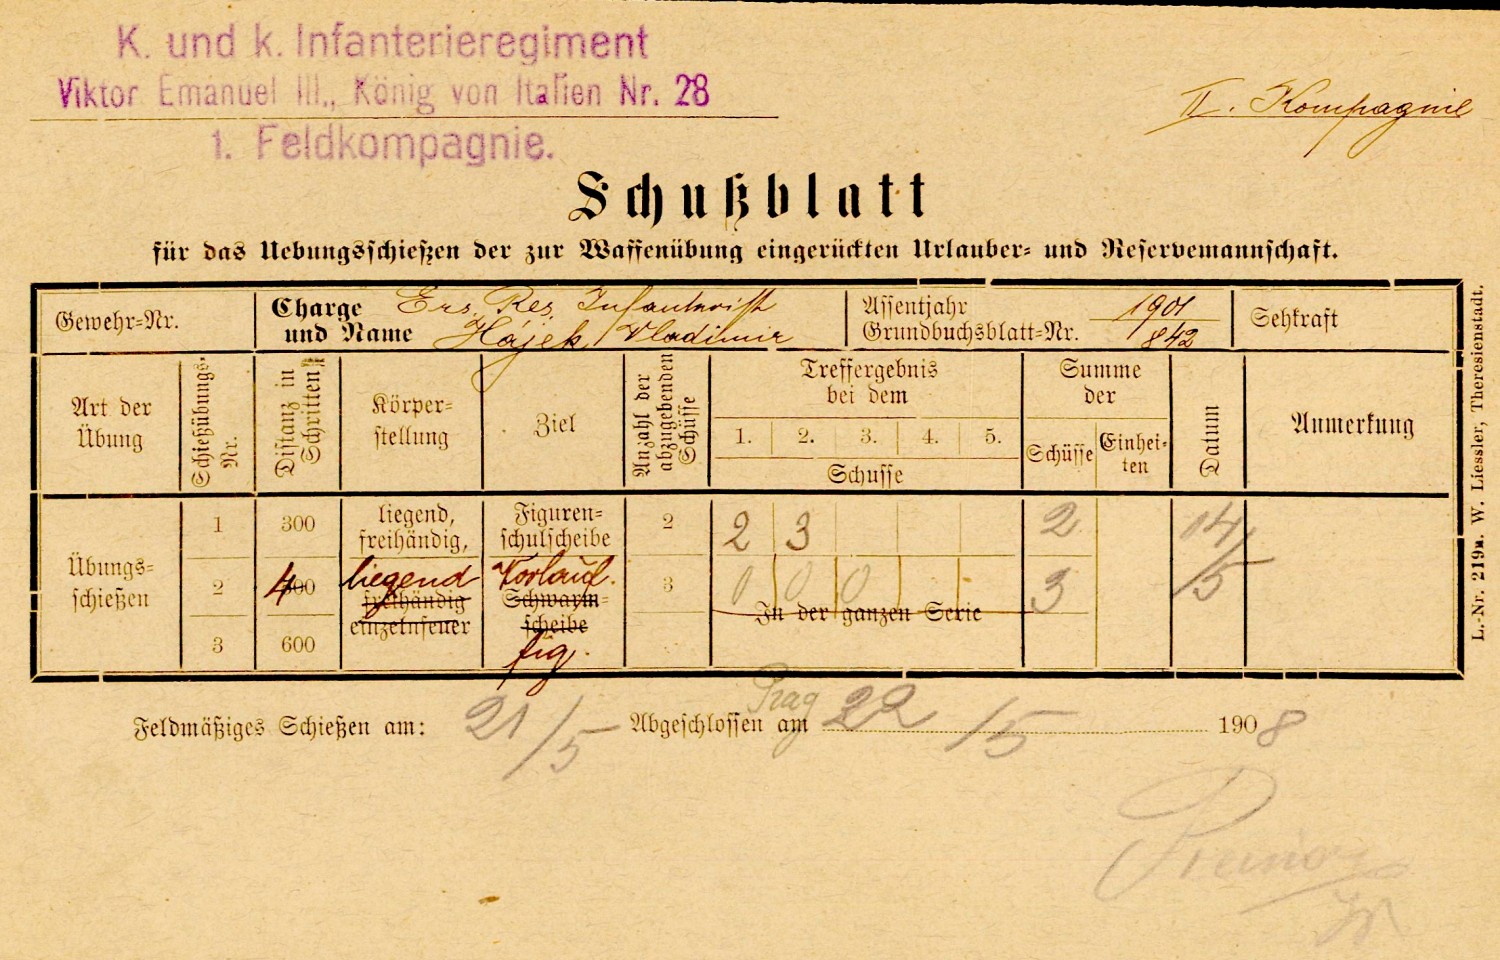 K. und k. Infanterieregiment
Viktor Emanuel III., König von Italien Nr. 28
1. Feldkompagnie.
II. Kompagnie
Schußblatt
für das Uebungsschießen der zur Waffenübung eingerückten Urlauber- und Reservemannschaft.
Gewehr-Nr.
Charge und Name
Ers. Res. Infanterist
Hájek Vladimir
Assentjahr 1901
Grundbuchsblatt-Nr. 842
Sehkraft
Art der Übung
Schießübungs-Nr.
Distanz in Schritten
Körper-stellung
Ziel
Anzahl der abzugebenden Schüsse
Treffergebnis bei dem
1. 2. 3. 4. 5.
Schusse
Summe der
Schüsse
Einhei-ten
Datum
Anmerkung
Übungs-schießen
1 300 liegend, freihändig, Figuren-schulscheibe 2 2 3 2 14/5
2 400 liegend freihändig einzelnfeuer Vorlauf. Schwarm-scheibe fig. 3 0 0 0 3
In der ganzen Serie
3 600
Feldmäßiges Schießen am: 21/5 Abgeschlossen Prag am 22/5 1908
L.-Nr. 219n. W. Liessler, Theresienstadt.